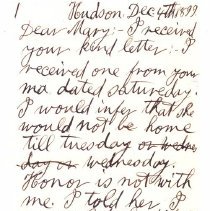 1 Hudson Dec 4th 1899
Dear Mary:- I received
your kind letter:- I
received one from your
ma dated saturday.
I would infer that she
would not be home
till tuesday or wednes
day or wednesday.
Honor is not with
me. I told her I